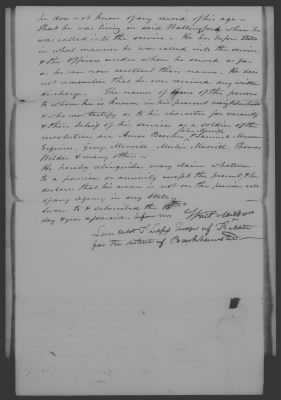 he does not know of any record of his age -
that he was living in said Wallingford when he
was called into the service - He has before stated
in what manner he was called into the service
& the officers under whom he served as far
as he can now recollect their names. He does
not remember that he ever received any written
discharge. The names of some of the persons
to whom he is known in his present neighborhood
& who can testify as to his character for veracity
& their belief of his services as a soldier of the
revolution are Amos Beecher, Samuel
Esquires, George Merrill, Merlin Merrill, Thomas
Wilder & many others -
He hereby relinquishes every claim whatever
to a pension or annuity except the present & he
declares that his name is not on the pension roll
of any agency in any state
Sworn to & subscribed the
day & year aforesaid, before me
Judge of Probate
for the district of Barkhamsted